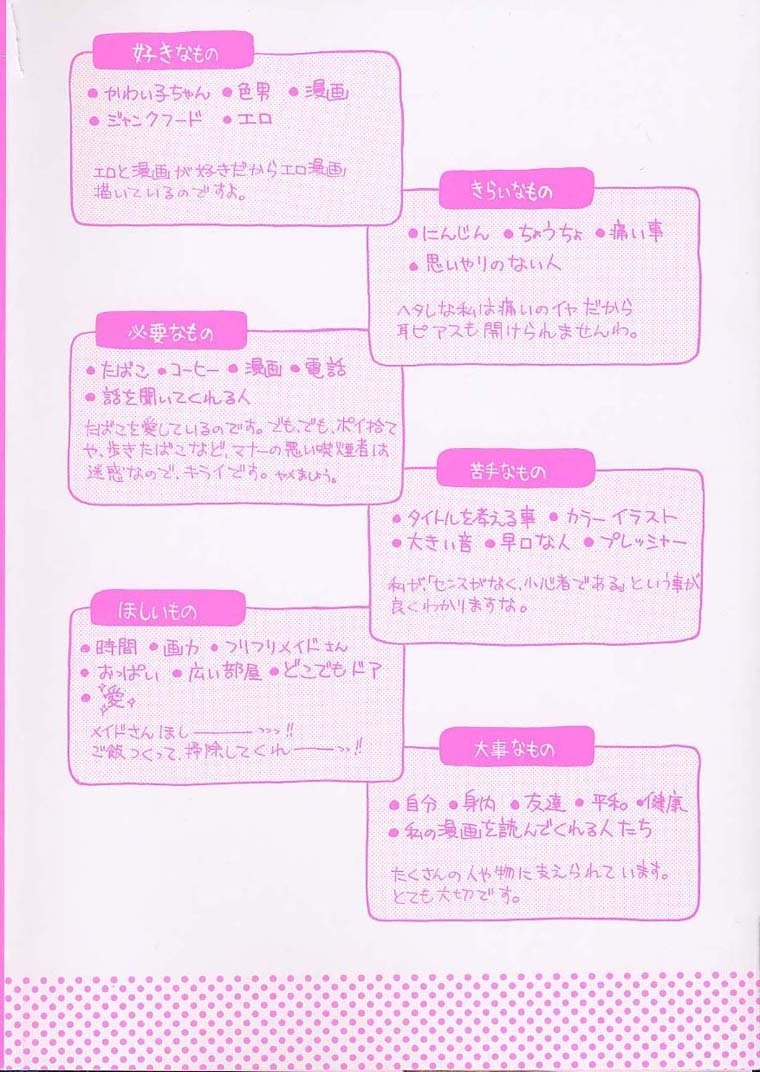 好きなもの
●かわい子ちゃん ●色男 ●漫画
●ジャンクフード ●エロ
エロと漫画が好きだからエロ漫画
描いているのですよ。
きらいなもの
●にんじん ●ちょうちょ ●痛い事
●思いやりのない人
ヘタレな私は痛いのイヤだから
耳ピアスも開けられませんわ。
必要なもの
●たばこ ●コーヒー ●漫画 ●電話
●話を聞いてくれる人
たばこを愛しているのです。でも、でも、ポイ捨て
や、歩きたばこなど、マナーの悪い喫煙者は
迷惑なので、キライです。ヤメましょう。
苦手なもの
●タイトルを考える事 ●カラーイラスト
●大きい音 ●早口な人 ●プレッシャー
私が、「センスがなく、小心者である』という事が
良くわかりますな。
ほしいもの
●時間 ●画力 ●フリフリメイドさん
●おっぱい ●広い部屋 ●どこでもドア
●愛
メイドさんほしーーーッッッ!!
ご飯つくって、掃除してくれーーーッッ!!
大事なもの
●自分 ●身内 ●友達 ●平和。 ●健康
●私の漫画を読んでくれる人たち
たくさんの人や物に支えられています。
とても大切です。